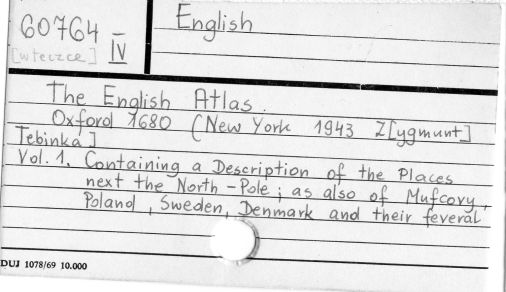 60764 IV
[w teczce]
English
The English Atlas.
Oxford 1680 (New York 1943 Z[ygmunt]
Tebinka]
Vol. 1. Containing a Description of the Places
next the North-Pole; as also of Mufcovy,
Poland, Sweden, Denmark and their feveral
DUJ 1078/69 10.000